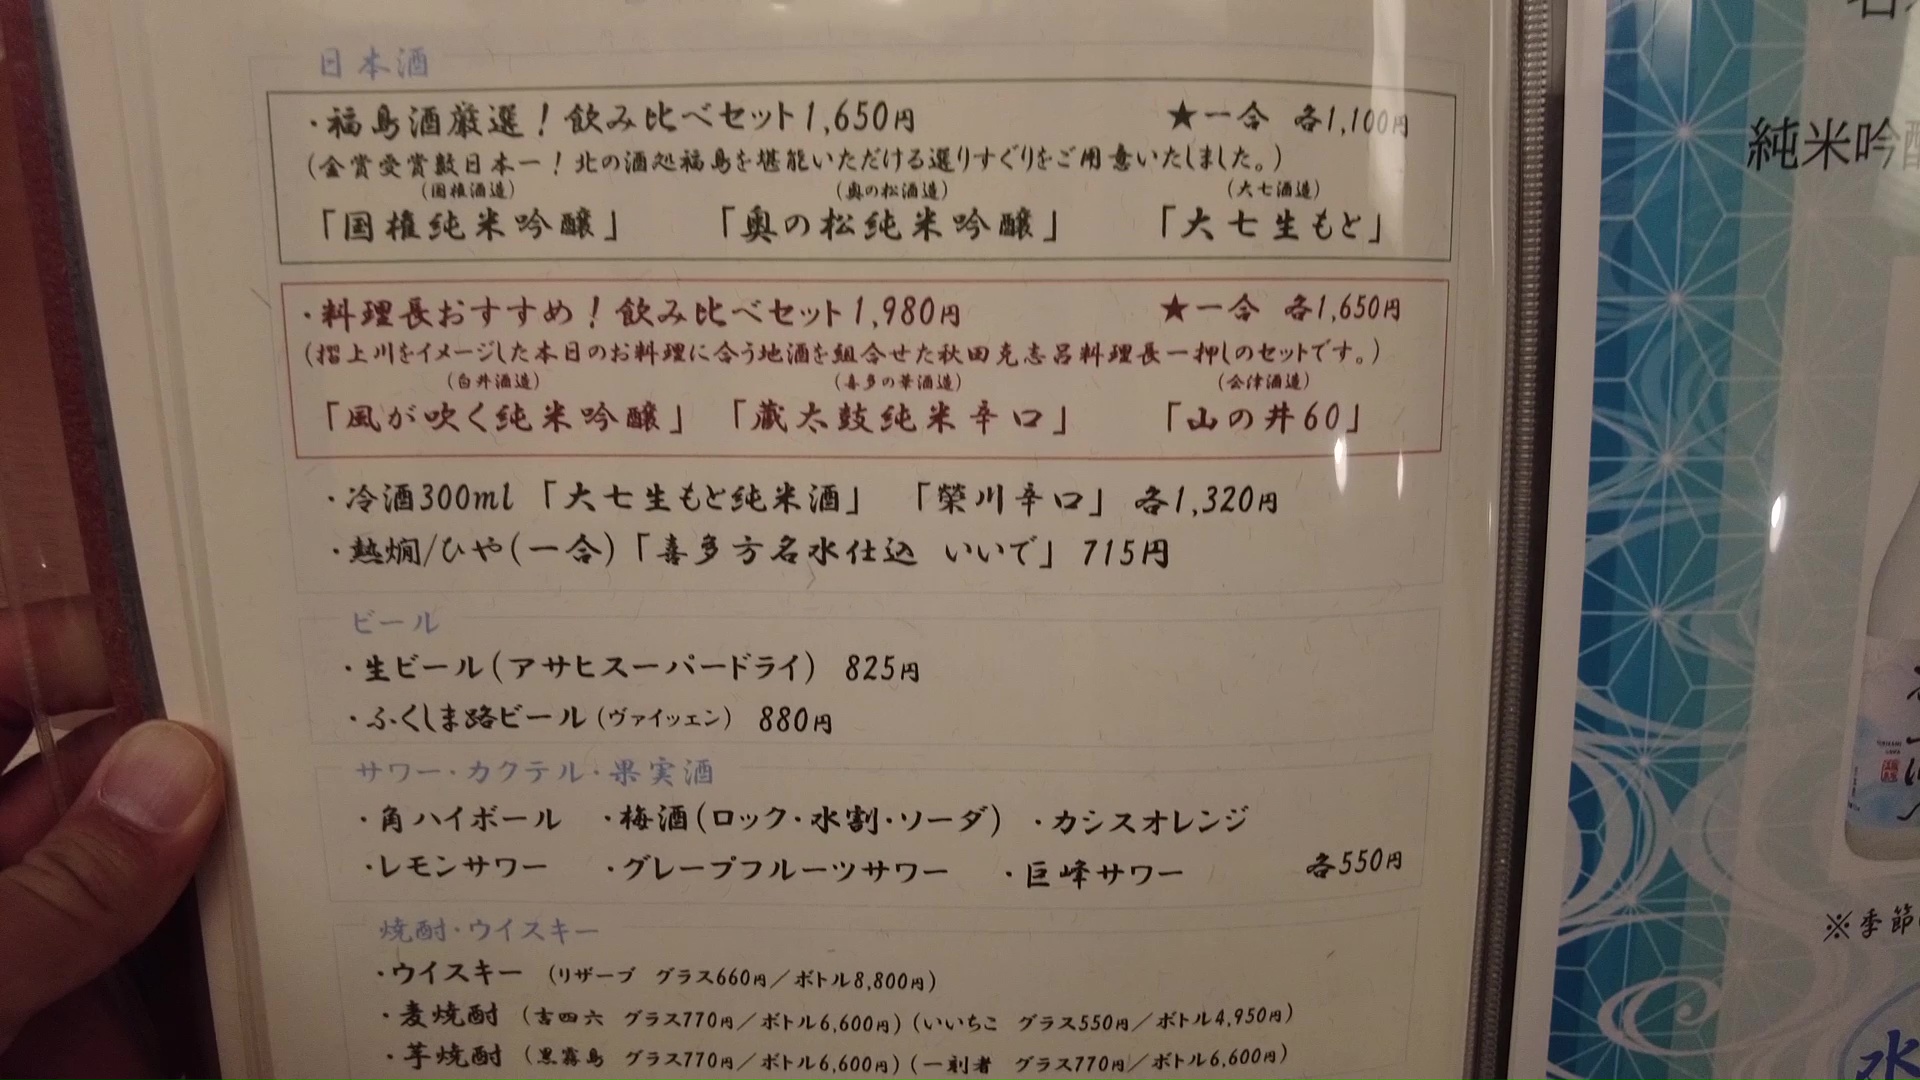 日本酒
・福島酒厳選！飲み比べセット1,650円 ★一合 各1,100円
(金賞受賞数日本一！北の酒処福島を堪能いただける選りすぐりをご用意いたしました。)
(国権酒造) (奥の松酒造) (大七酒造)
「国権純米吟醸」 「奥の松純米吟醸」 「大七生もと」
・料理長おすすめ！飲み比べセット1,980円 ★一合 各1,650円
(摺上川をイメージした本日のお料理に合う地酒を組合せた秋田克志呂料理長一押しのセットです。)
(白井酒造) (喜多の華酒造) (会津酒造)
「風が吹く純米吟醸」 「蔵太鼓純米辛口」 「山の井60」
・冷酒300ml 「大七生もと純米酒」 「榮川辛口」 各1,320円
・熱燗/ひや(一合)「喜多方名水仕込 いいで」 715円
ビール
・生ビール(アサヒスーパードライ) 825円
・ふくしま路ビール(ヴァイツェン) 880円
サワー・カクテル・果実酒
・角ハイボール ・梅酒(ロック・水割・ソーダ) ・カシスオレンジ
・レモンサワー ・グレープフルーツサワー ・巨峰サワー 各550円
焼酎・ウイスキー
・ウイスキー (リザーブ グラス660円／ボトル8,800円)
・麦焼酎 (吉四六 グラス770円／ボトル6,600円)(いいちこ グラス550円／ボトル4,950円)
・芋焼酎 (黒霧島 グラス770円／ボトル6,600円)(一刻者 グラス770円／ボトル6,600円)
純米吟
※季節
水